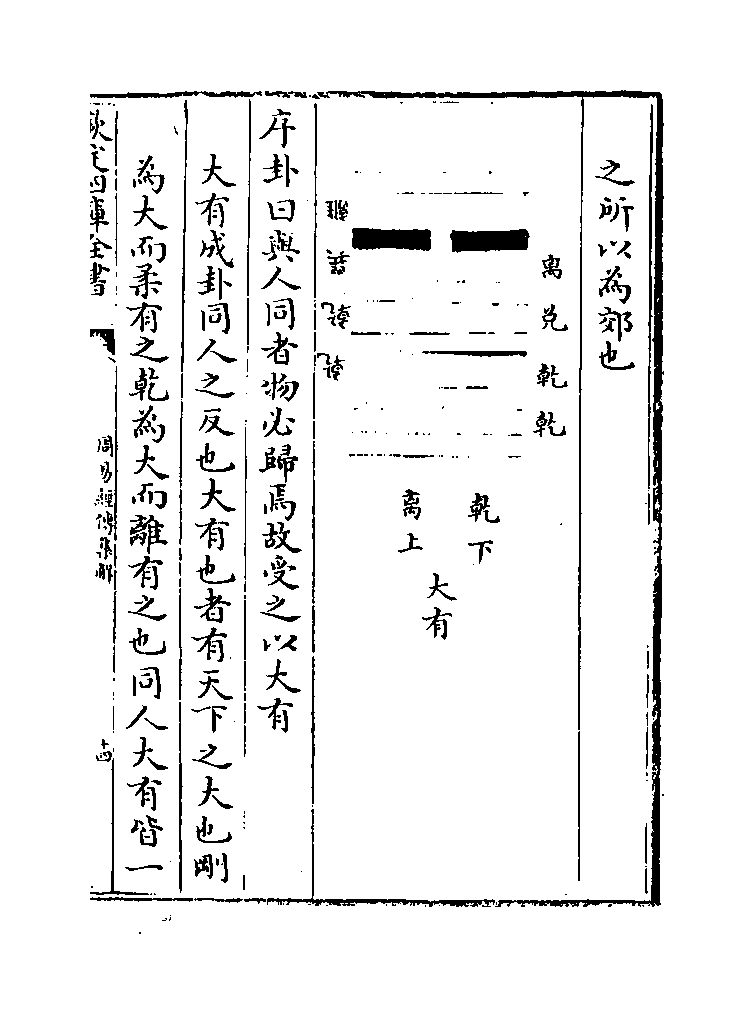 之所以為郊也
离 兑 乾 乾
離 巽 乾 乾
乾下
离上
大有
序卦曰與人同者物必歸焉故受之以大有
大有成卦同人之反也大有也者有天下之大也剛
為大而柔有之乾為大而離有之也同人大有皆一
欽定四庫全書
周易經傳集解
十四